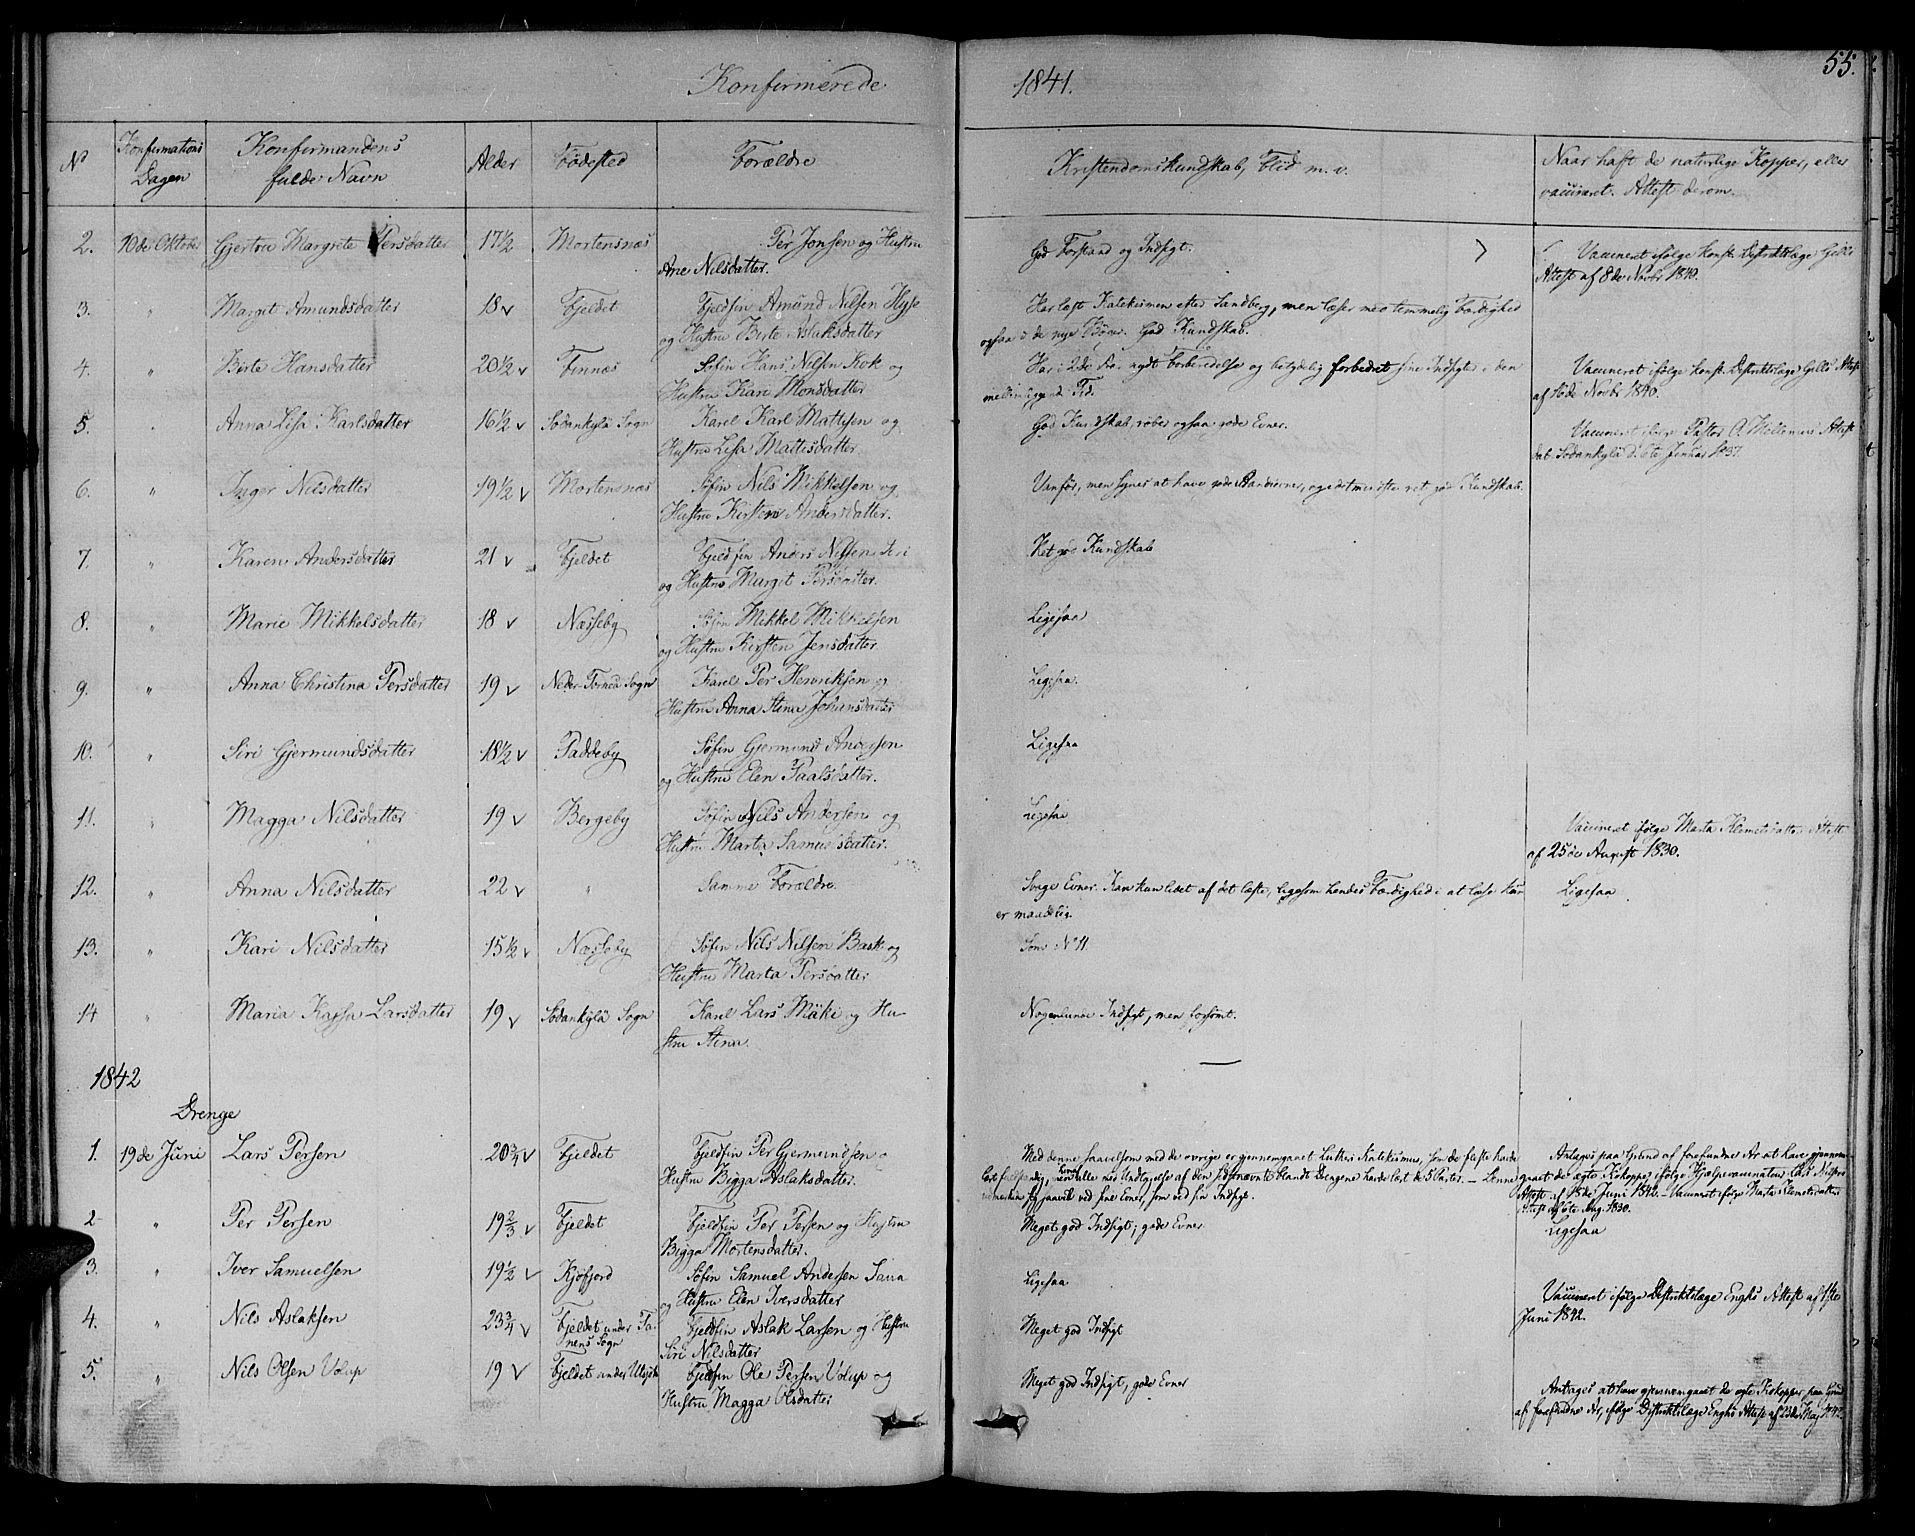 Konfirmerede
1841.
55.
No
Konfirmations Dagen
Konfirmandens fulde Navn
Alder
Fødested
Forældre
Kristendomskundskab, Flid m. v.
Naar haft de naturlige Kopper, eller
vaccineret. Attest derom.
2. 10de Oktober Gjertru Margrete Persdatter 17½ Mortensnæs Per Jonsen og Hustru
Ane Nilsdatter.
God Forstand og Indsigt.
Vaccineret ifølge konst. Distriktslæge Gills
Attest af 8de Novbr 1840.
3. " Margit Amundsdatter 18 Fjeldet Fjeldfin Amund Nilsen
og Hustru Birte Aslaksdatter
Har læst Katekismen efter Sandberg, men læser med temmelig Færdighed
ogsaa i de nye Bøger. God Kundskab.
4. " Berte Hansdatter 20½ Finnæs Søfin Hans Nilsen Kok og
Hustru Kari Monsdatter
Har i 2de Aar nydt Forberedelse og betydelig forbedret sine Indsigter i den
mellemliggende Tid.
Vaccineret ifølge konst. Distriktslæge Gills Attest
af 16de Novbr 1840.
5. " Anna Lisa Karlsdatter 16½ Sodankylä Sogn Karel Karl Mattisen og
Hustru Lisa Mattisdatter
God Kundskab, røber ogsaa gode Evner.
Vaccineret ifølge Pastor A. Mellenius Attest
dat. Sodankylä d. 6te Januar 1837.
6. " Inger Nilsdatter 19½ Mortensnæs Søfin Nils Mikkelsen og
Hustru Kirsten Andersdatter.
Vanfør, men synes at have gode Aandsevner, og idetmindste ret god Kundskab.
7. " Karen Andersdatter 21 Fjeldet Fjeldfin Anders Nilsen
og Hustru Margit Persdatter.
Ret god Kundskab
8. " Marie Mikkelsdatter 18 Næsseby Søfin Mikkel Mikkelsen
og Hustru Kirsten Jensdatter.
Ligesaa
9. " Anna Christina Persdatter 19 Neder Torneå Sogn Karel Per Henriksen og
Hustru Anna Stina Johansdatter
Ligesaa.
10. " Siri Gjermundsdatter 18½ Paddeby Søfin Gjermund Andersen
og Hustru Elen Paalsdatter.
Ligesaa
11. " Magga Nilsdatter 19 Bergeby Søfin Nils Andersen og
Hustru Marta Samuelsdatter.
Ligesaa
Vaccineret ifølge Marta Klemetsdatters Attest
af 25de August 1830.
12. " Anna Nilsdatter 22 " Samme Forældre
Svage Evner. Kan kun lidet af det læste, ligesom hendes Færdighed i at læse kun
er maadelig.
Ligesaa
13. " Kari Nilsdatter 15½ Næsseby Søfin Nils Nilsen Bask og
Hustru Marta Persdatter
Som No 11
14 " Maria Kajsa Larsdatter 19 Sodankylä Sogn Karel Lars Mäki og Hu-
stru Stina.
Nogenlunde Indsigt, men forsømt.
1842
Drenge
1. 19de Juni Lars Persen 20¾ Fjeldet Fjeldfin Per Gjermundsen og
Hustru Bigga Aslaksdatter.
Med denne saavelsom med de øvrige er gjennemgaaet Luthers Katekismus, som de fleste havde
lært fuldstændig, men alle med Undtagelse af den sidstnævnte blandt Drengene havde lært de 5 Parter. – Denne
udmærkede sig saavel ved sine Evner, som ved sin Indsigt.
Antages paa Grund af forefundne Ar at have gjennem-
gaaet de ægte Kokopper ifølge Hjælpevaccinatør Lars Nilsens
Attest af 18de Juni 1842. – Vaccineret ifølge Marta Klemetsdatters
Attest af 6te Aug. 1830.
2. " Per Persen 19⅔ Fjeldet Fjeldfin Per Persen og Hustru
Bigga Mortensdatter.
Meget god Indsigt; gode Evner
Ligesaa
3. " Iver Samuelsen 19½ Kjøfjord Søfin Samuel Andersen
og Hustru Elen Iversdatter
Ligesaa
Vaccineret ifølge Distriktslæge Enghs Attest af
Juni 1842.
4. " Nils Aslaksen 23¾ Fjeldet under Ta-
nens Sogn Fjeldfin Aslak Larsen og Hustru
Siri Nilsdatter
Meget god Indsigt
5. " Nils Olsen Volup 19 Fjeldet under Utsjok Fjeldfin Ole Persen Volup og
Hustru Magga Olsdatter
Meget god Indsigt, gode Evner
Antages at have gjennemgaaet de ægte Kokopper paa Grund
af forefundne Ar, ifølge Distriktslæge Enghs Attest af 23de May 1842.